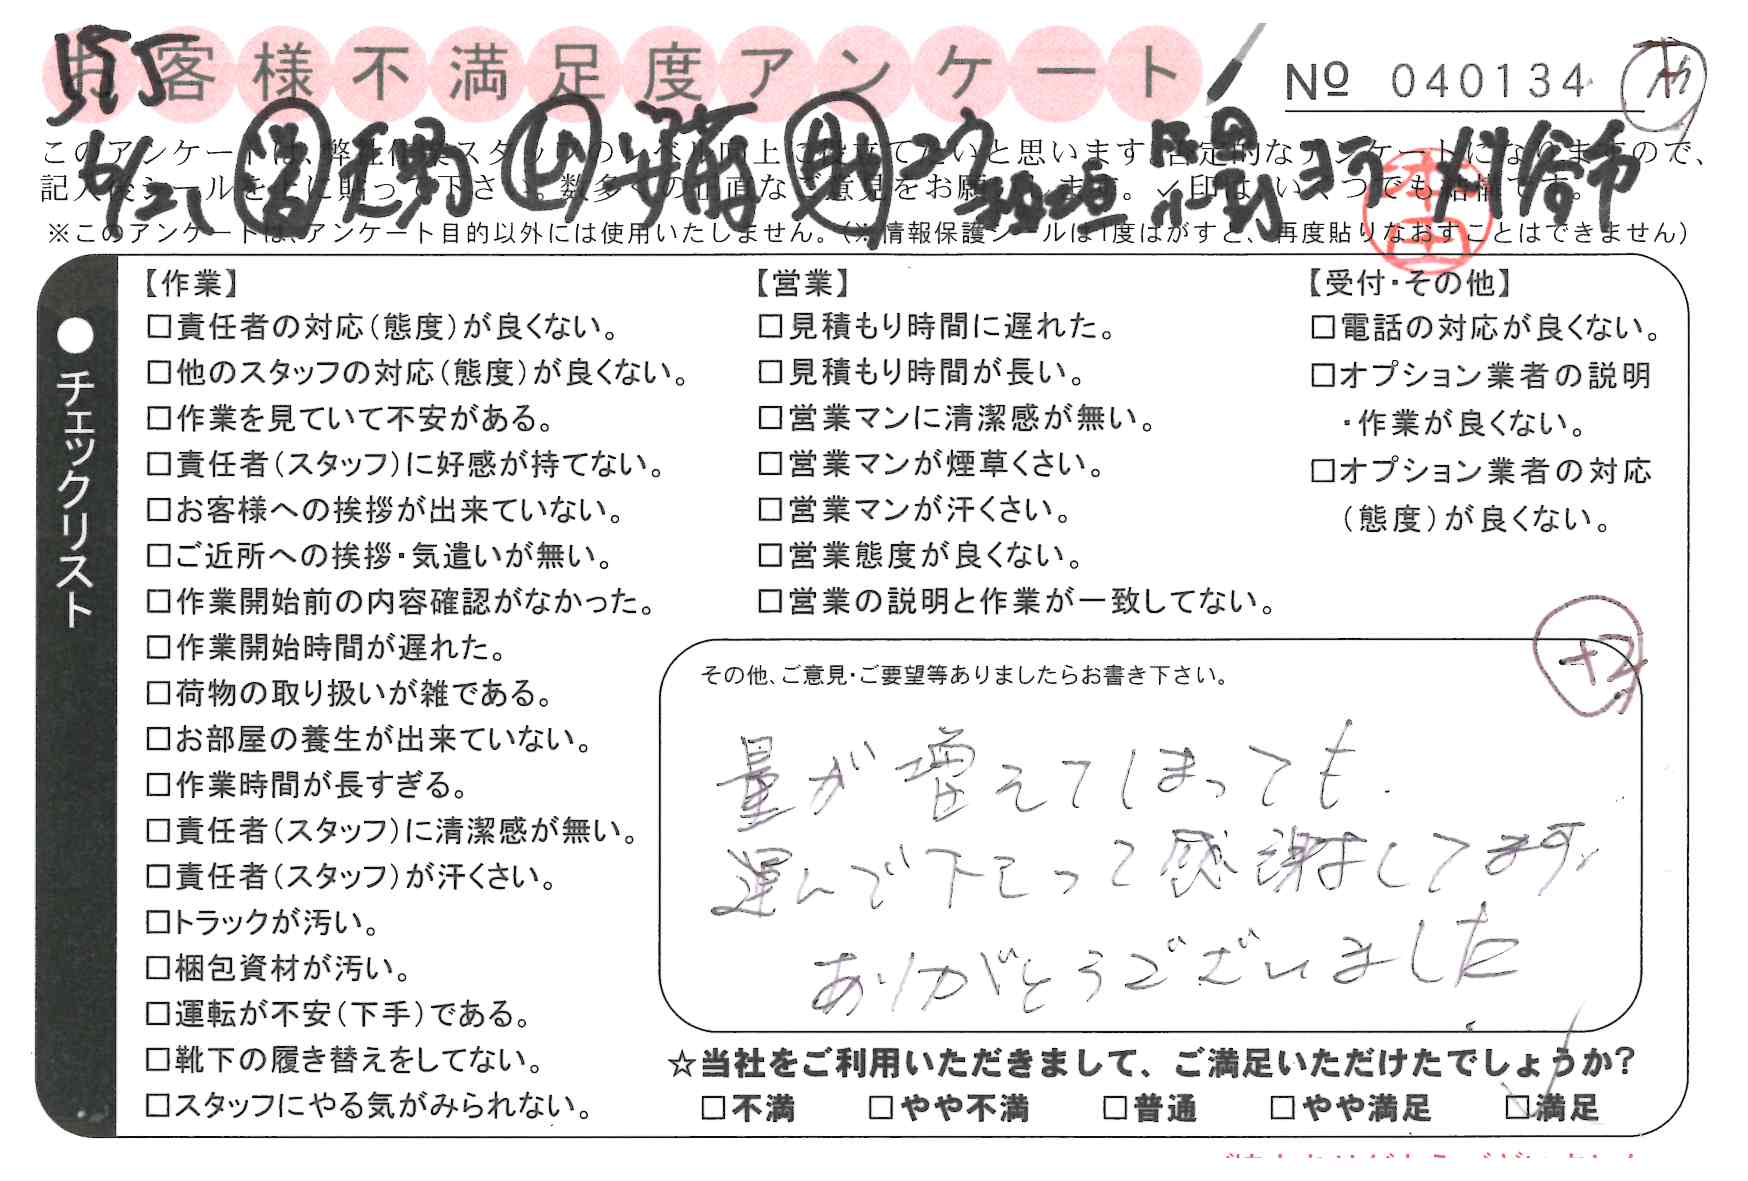 お客様不満足度アンケート
№ 040134
このアンケートは、弊社作業スタッフのレベル向上に役立てたいと思います。否定的なアンケートになりますので、
記入後シールを上に貼って下さい。数多くの正直なご意見をお願いします。✓印は、いくつでも結構です。
※このアンケートは、アンケート目的以外には使用いたしません。(※情報保護シールは1度はがすと、再度貼りなおすことはできません)
●チェックリスト
【作業】
□責任者の対応(態度)が良くない。
□他のスタッフの対応(態度)が良くない。
□作業を見ていて不安がある。
□責任者(スタッフ)に好感が持てない。
□お客様への挨拶が出来ていない。
□ご近所への挨拶・気遣いが無い。
□作業開始前の内容確認がなかった。
□作業開始時間が遅れた。
□荷物の取り扱いが雑である。
□お部屋の養生が出来ていない。
□作業時間が長すぎる。
□責任者(スタッフ)に清潔感が無い。
□責任者(スタッフ)が汗くさい。
□トラックが汚い。
□梱包資材が汚い。
□運転が不安(下手)である。
□靴下の履き替えをしてない。
□スタッフにやる気がみられない。
【営業】
□見積もり時間に遅れた。
□見積もり時間が長い。
□営業マンに清潔感が無い。
□営業マンが煙草くさい。
□営業マンが汗くさい。
□営業態度が良くない。
□営業の説明と作業が一致してない。
【受付・その他】
□電話の対応が良くない。
□オプション業者の説明
・作業が良くない。
□オプション業者の対応
(態度)が良くない。
+2
その他、ご意見・ご要望等ありましたらお書き下さい。
量が増えてしまっても
運んで下さって感謝してます。
ありがとうございました
☆当社をご利用いただきまして、ご満足いただけたでしょうか?
□不満 □やや不満 □普通 □やや満足 □満足